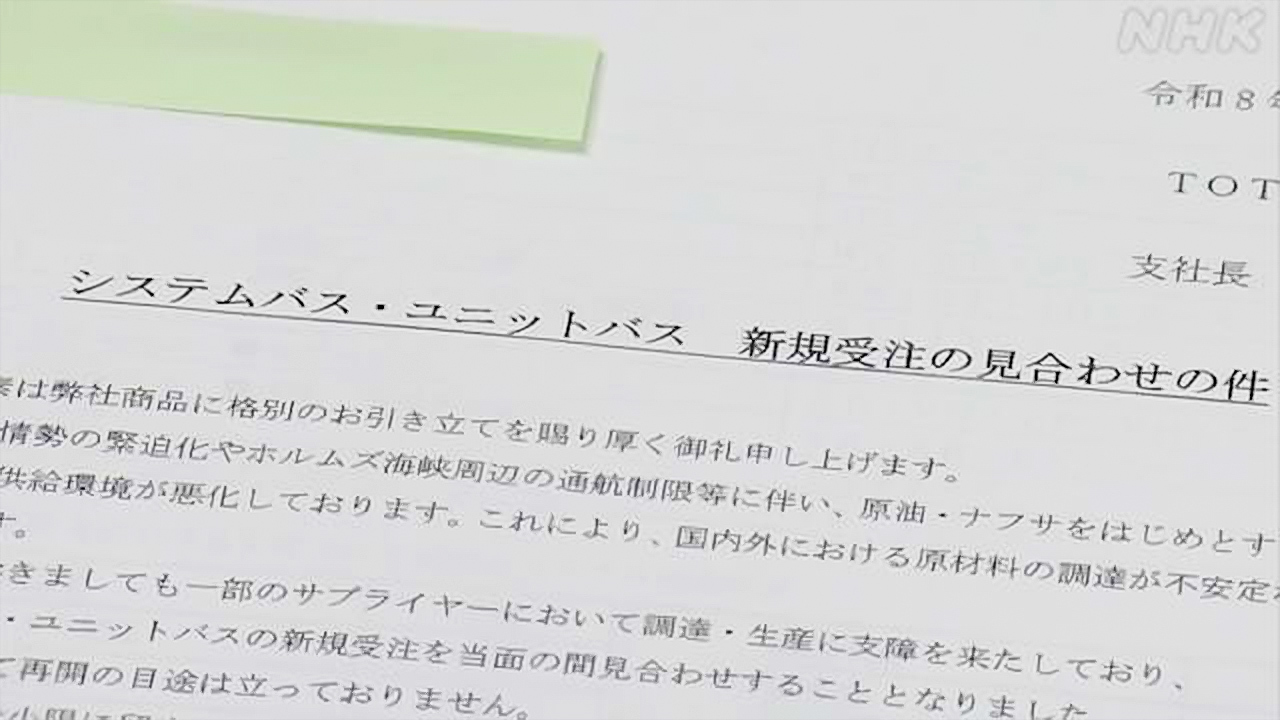 NHK
令和8年
TOT
支社長
システムバス・ユニットバス 新規受注の見合わせの件
は弊社商品に格別のお引き立てを賜り厚く御礼申し上げます。
情勢の緊迫化やホルムズ海峡周辺の通航制限等に伴い、原油・ナフサをはじめとす
供給環境が悪化しております。これにより、国内外における原材料の調達が不安定
す。
きましても一部のサプライヤーにおいて調達・生産に支障を来たしており、
・ユニットバスの新規受注を当面の間見合わせすることとなりました
て再開の目途は立っておりません。